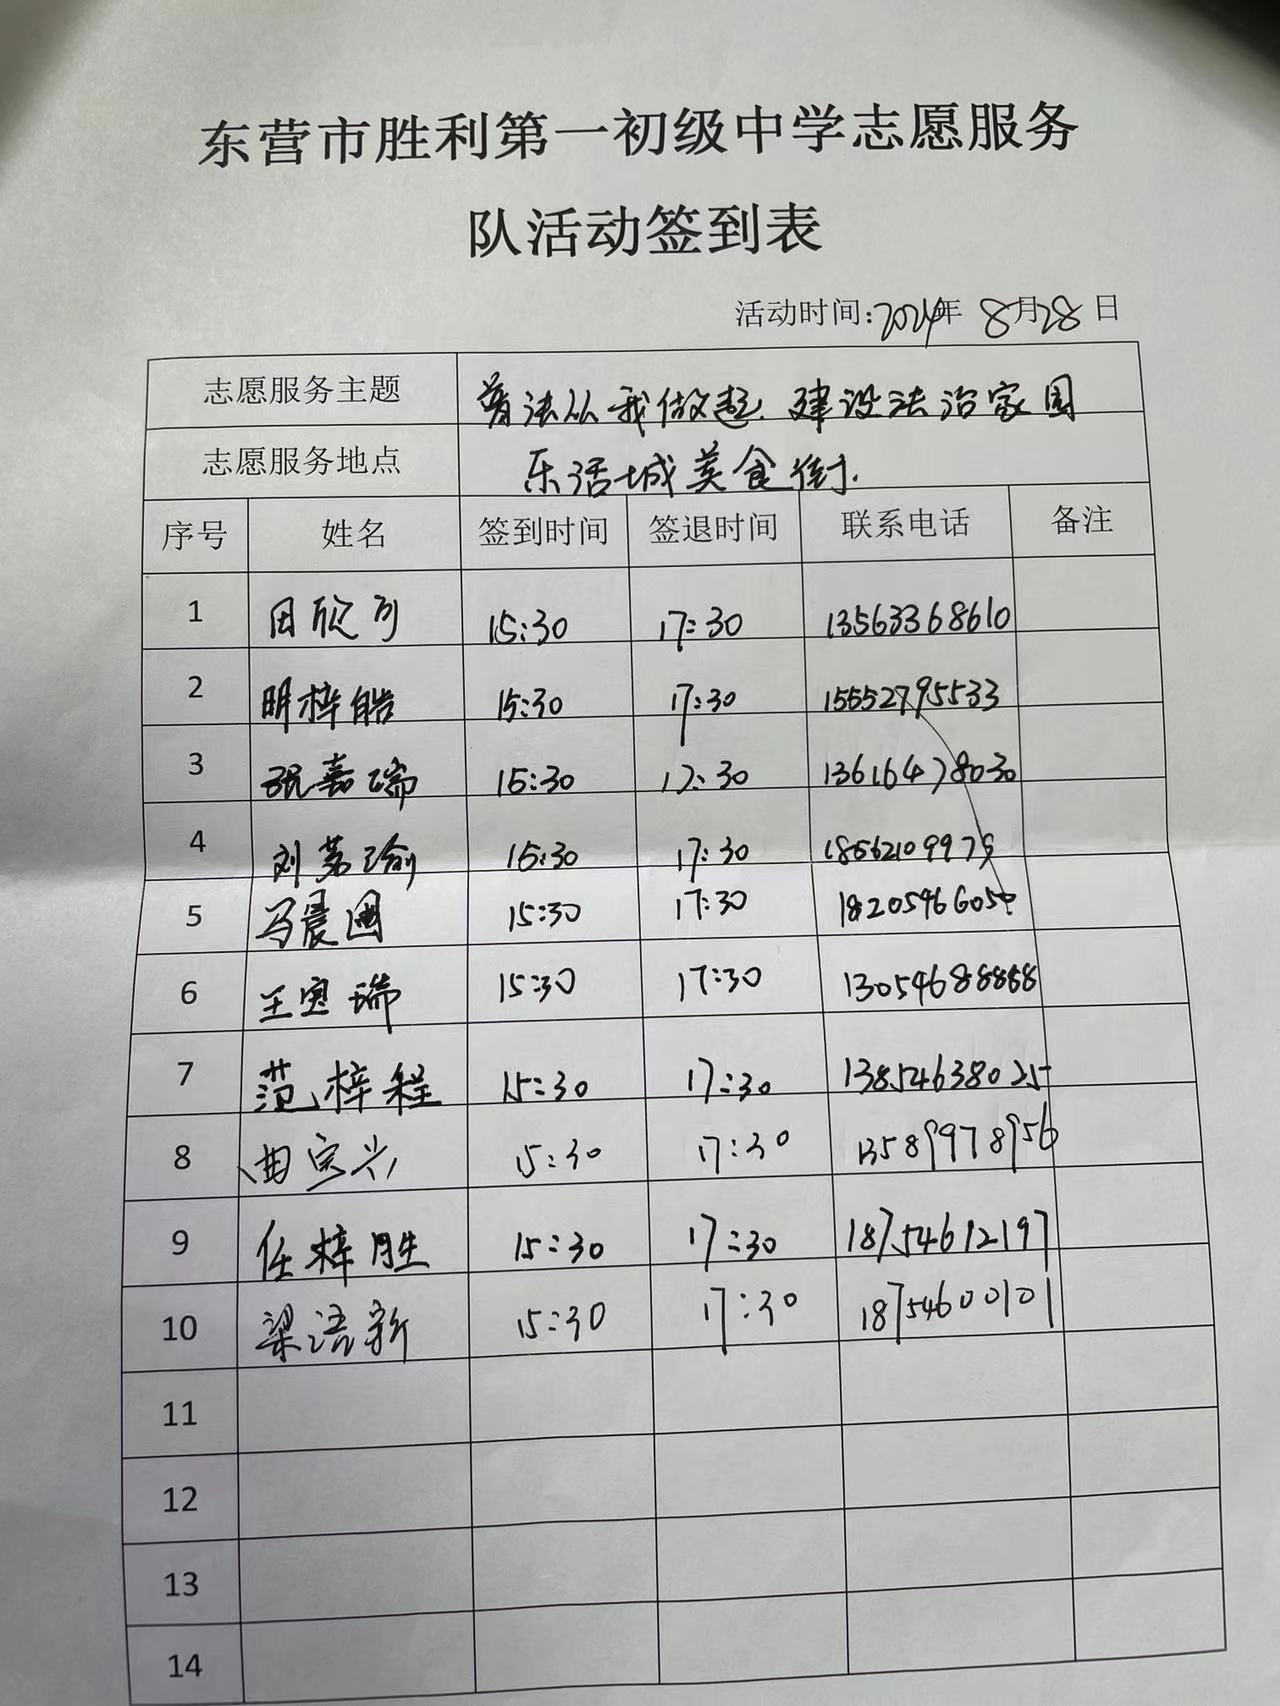 东营市胜利第一初级中学志愿服务
队活动签到表
活动时间:2024年 8月28日
志愿服务主题 普法从我做起 建设法治家园
志愿服务地点 乐活城美食街.
序号 姓名 签到时间 签退时间 联系电话 备注
1 田欣可 15:30 17:30 13563368610
2 明梓皓 15:30 17:30 15552795533
3 张嘉瑞 15:30 17:30 13616478030
4 刘茗瑜 15:30 17:30 18562109979
5 马晨 15:30 17:30
6 王寅瑞 15:30 17:30 13054688868
7 范梓程 15:30 17:30 13854638025
8 曲宗兴 15:30 17:30 13589978956
9 任梓胜 15:30 17:30 18754612197
10 梁语新 15:30 17:30 18754600101
11
12
13
14